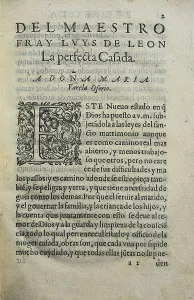 2
DEL MAESTRO
FRAY LVYS DE LEON
La perfecta Casada.
A DOÑA MARIA
Varela Osorio.
ESTE Nueuo estado en q̃
Dios ha puesto a v.m. sub
jetandola a las leyes del san
cto matrimonio aunque
es como camino real mas
abierto, y menos trabajo
so que otros, pero no care
ce de sus difficultades y ma
los passos: y es camino adonde se estropieça tam
bié, y se peligra y yerra, y que tiene necessidad de
guia como los demas. Por que el seruir al marido,
y el gouernar la familia, y la criança de los hijos,
y la cuenta que juntamente con esto se deue al te
mor de Dios y a la guarda y limpieza de la consci
todo lo qual pertenesce al estado y officio de la
muger casada, obras son, que cada vna por si pide
mucho cuydado, y que todas juntas no se pue
a 2
den